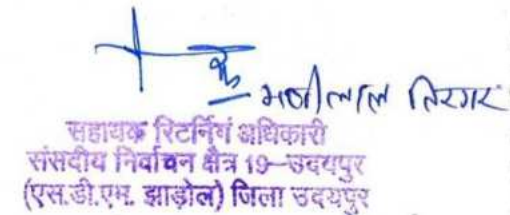 मणीलाल तिरगर
सहायक रिटर्निगं अधिकारी
संसदीय निर्वाचन क्षैत्र 19–उदयपुर
(एस.डी.एम. झाड़ोल) जिला उदयपुर